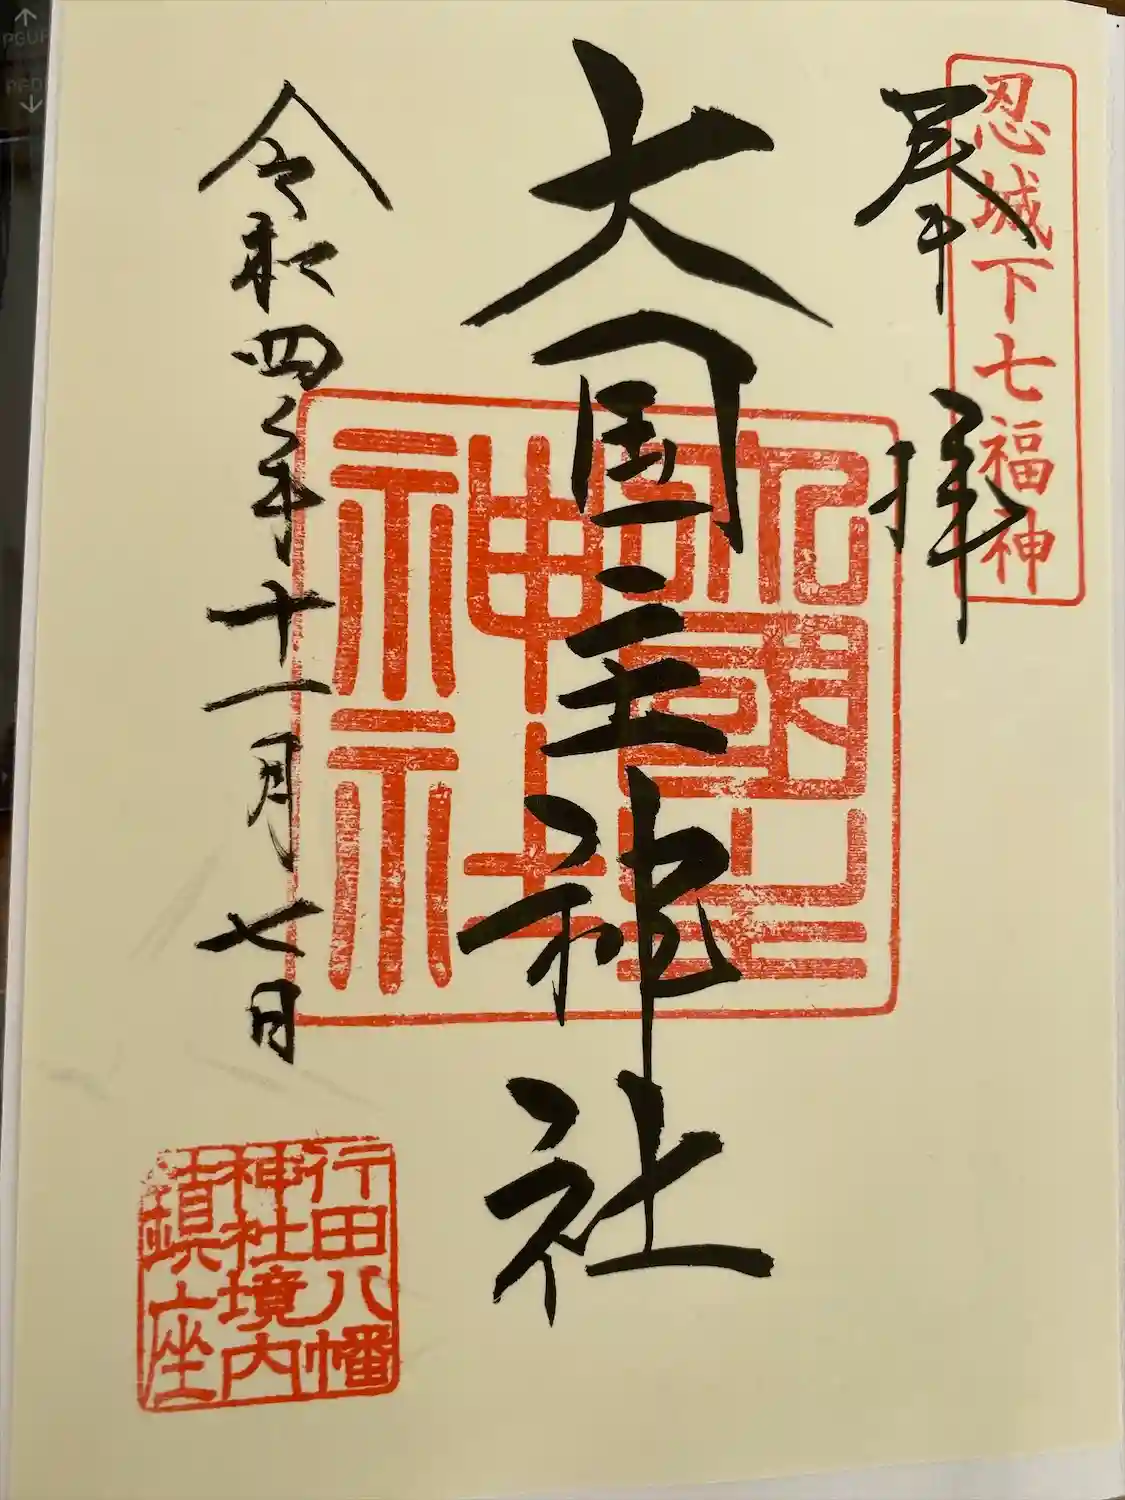 忍城下七福神
奉拝
大国主神社
大國主
神社
令和四年十一月七日
行田八幡
神社境内
鎮座
PGUP
PGD